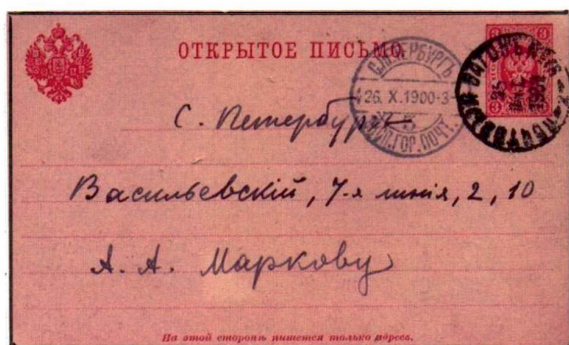 ОТКРЫТОЕ ПИСЬМО.
С.ПЕТЕРБУРГЪ
26.X.1900
ГОР.ПОЧТ.
ПОЧТОВЫЙ ВАГОНЪ
1900
3
3
С. Петербург
Васильевскій, 7-я линія, 2, 10
А. А. Маркову
На этой сторонѣ пишется только адресъ.